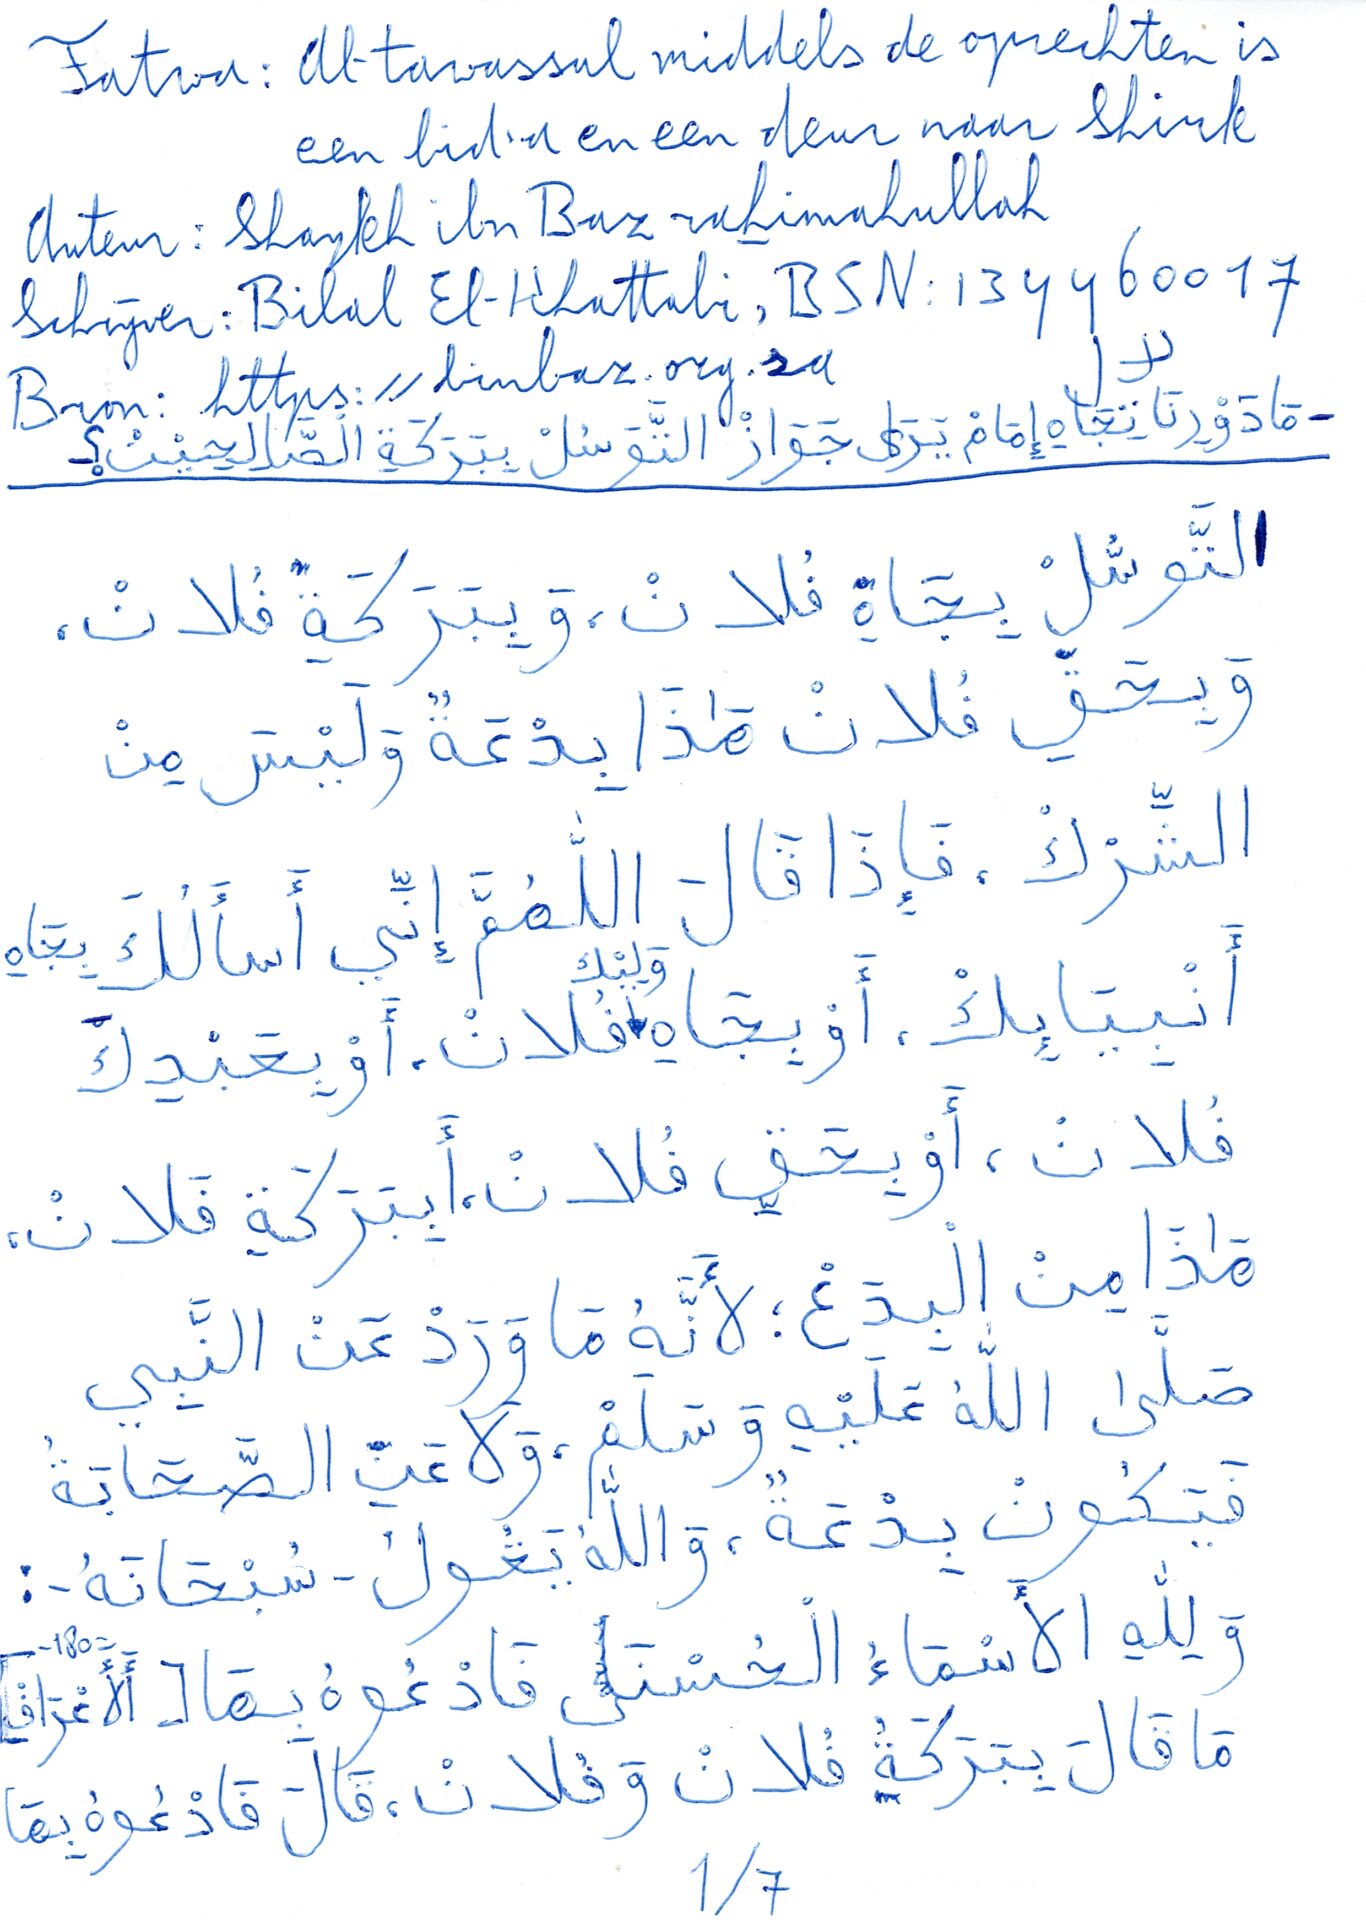 Fatwa: Al-tawassul middels de oprechten is
een bid'a en een deur naar Shirk
Auteur: Shaykh ibn Baz rahimahullah
Schrijver: Bilal El-Khattabi, BSN: 134460017
Bron: https://binbaz.org.sa
- مَا دَوْرِنَا تِجَاهِ إِمَامْ يَرَى جَوَازْ التَّوَسُلْ بِبَرَكَةِ الْصَّالِحِيْنْ؟ -
التَّوَسُّلْ بِجَاهِ فُلَانْ، وَبِبَرَكَةِ فُلَانْ،
وَبِحَقِّ فُلَانْ هَٰذَا بِدْعَةٌ وَلَيْسَ مِنْ
الشِّرْكْ، فَإِذَا قَالَ اللَّٰهُمَّ إِنِّي أَسأَلُكَ بِجَاهِ
أَنْبِيَايِٕكْ، أَوْ بِجَاهِ وَلِيْكِ فُلَانْ، أَوْ بِعَبْدِكْ
فُلَانْ، أَوْ بِحَقِّ فُلَانْ، أَ بِبَرَكَةِ فَلَانْ،
هَٰذَا مِنْ الْبِدَعْ؛ لَأَنَّهُ مَا وَرَدْ عَنْ النَّبِي
صَلَّىٰ اللَّٰهُ عَلَيْهِ وَسَلَمْ، وَلَا عَنِ الصَّحَابَةُ
فَيَكُونْ بِدْعَةٌ، وَاللَّٰهُ يَقُولُ - سُبْحَانَهُ -:
وَلِلَّٰهِ الأَسْمَاءُ الْحُسْنَىٰ فَادْعُوهُ بِهَا [أَلَأَعْرَافْ -180-]
مَا قَالَ بِبَرَكَةِ فُلَانْ وَفُلَانْ، قَالَ فَادْعُوهُ بِهَا
1/7